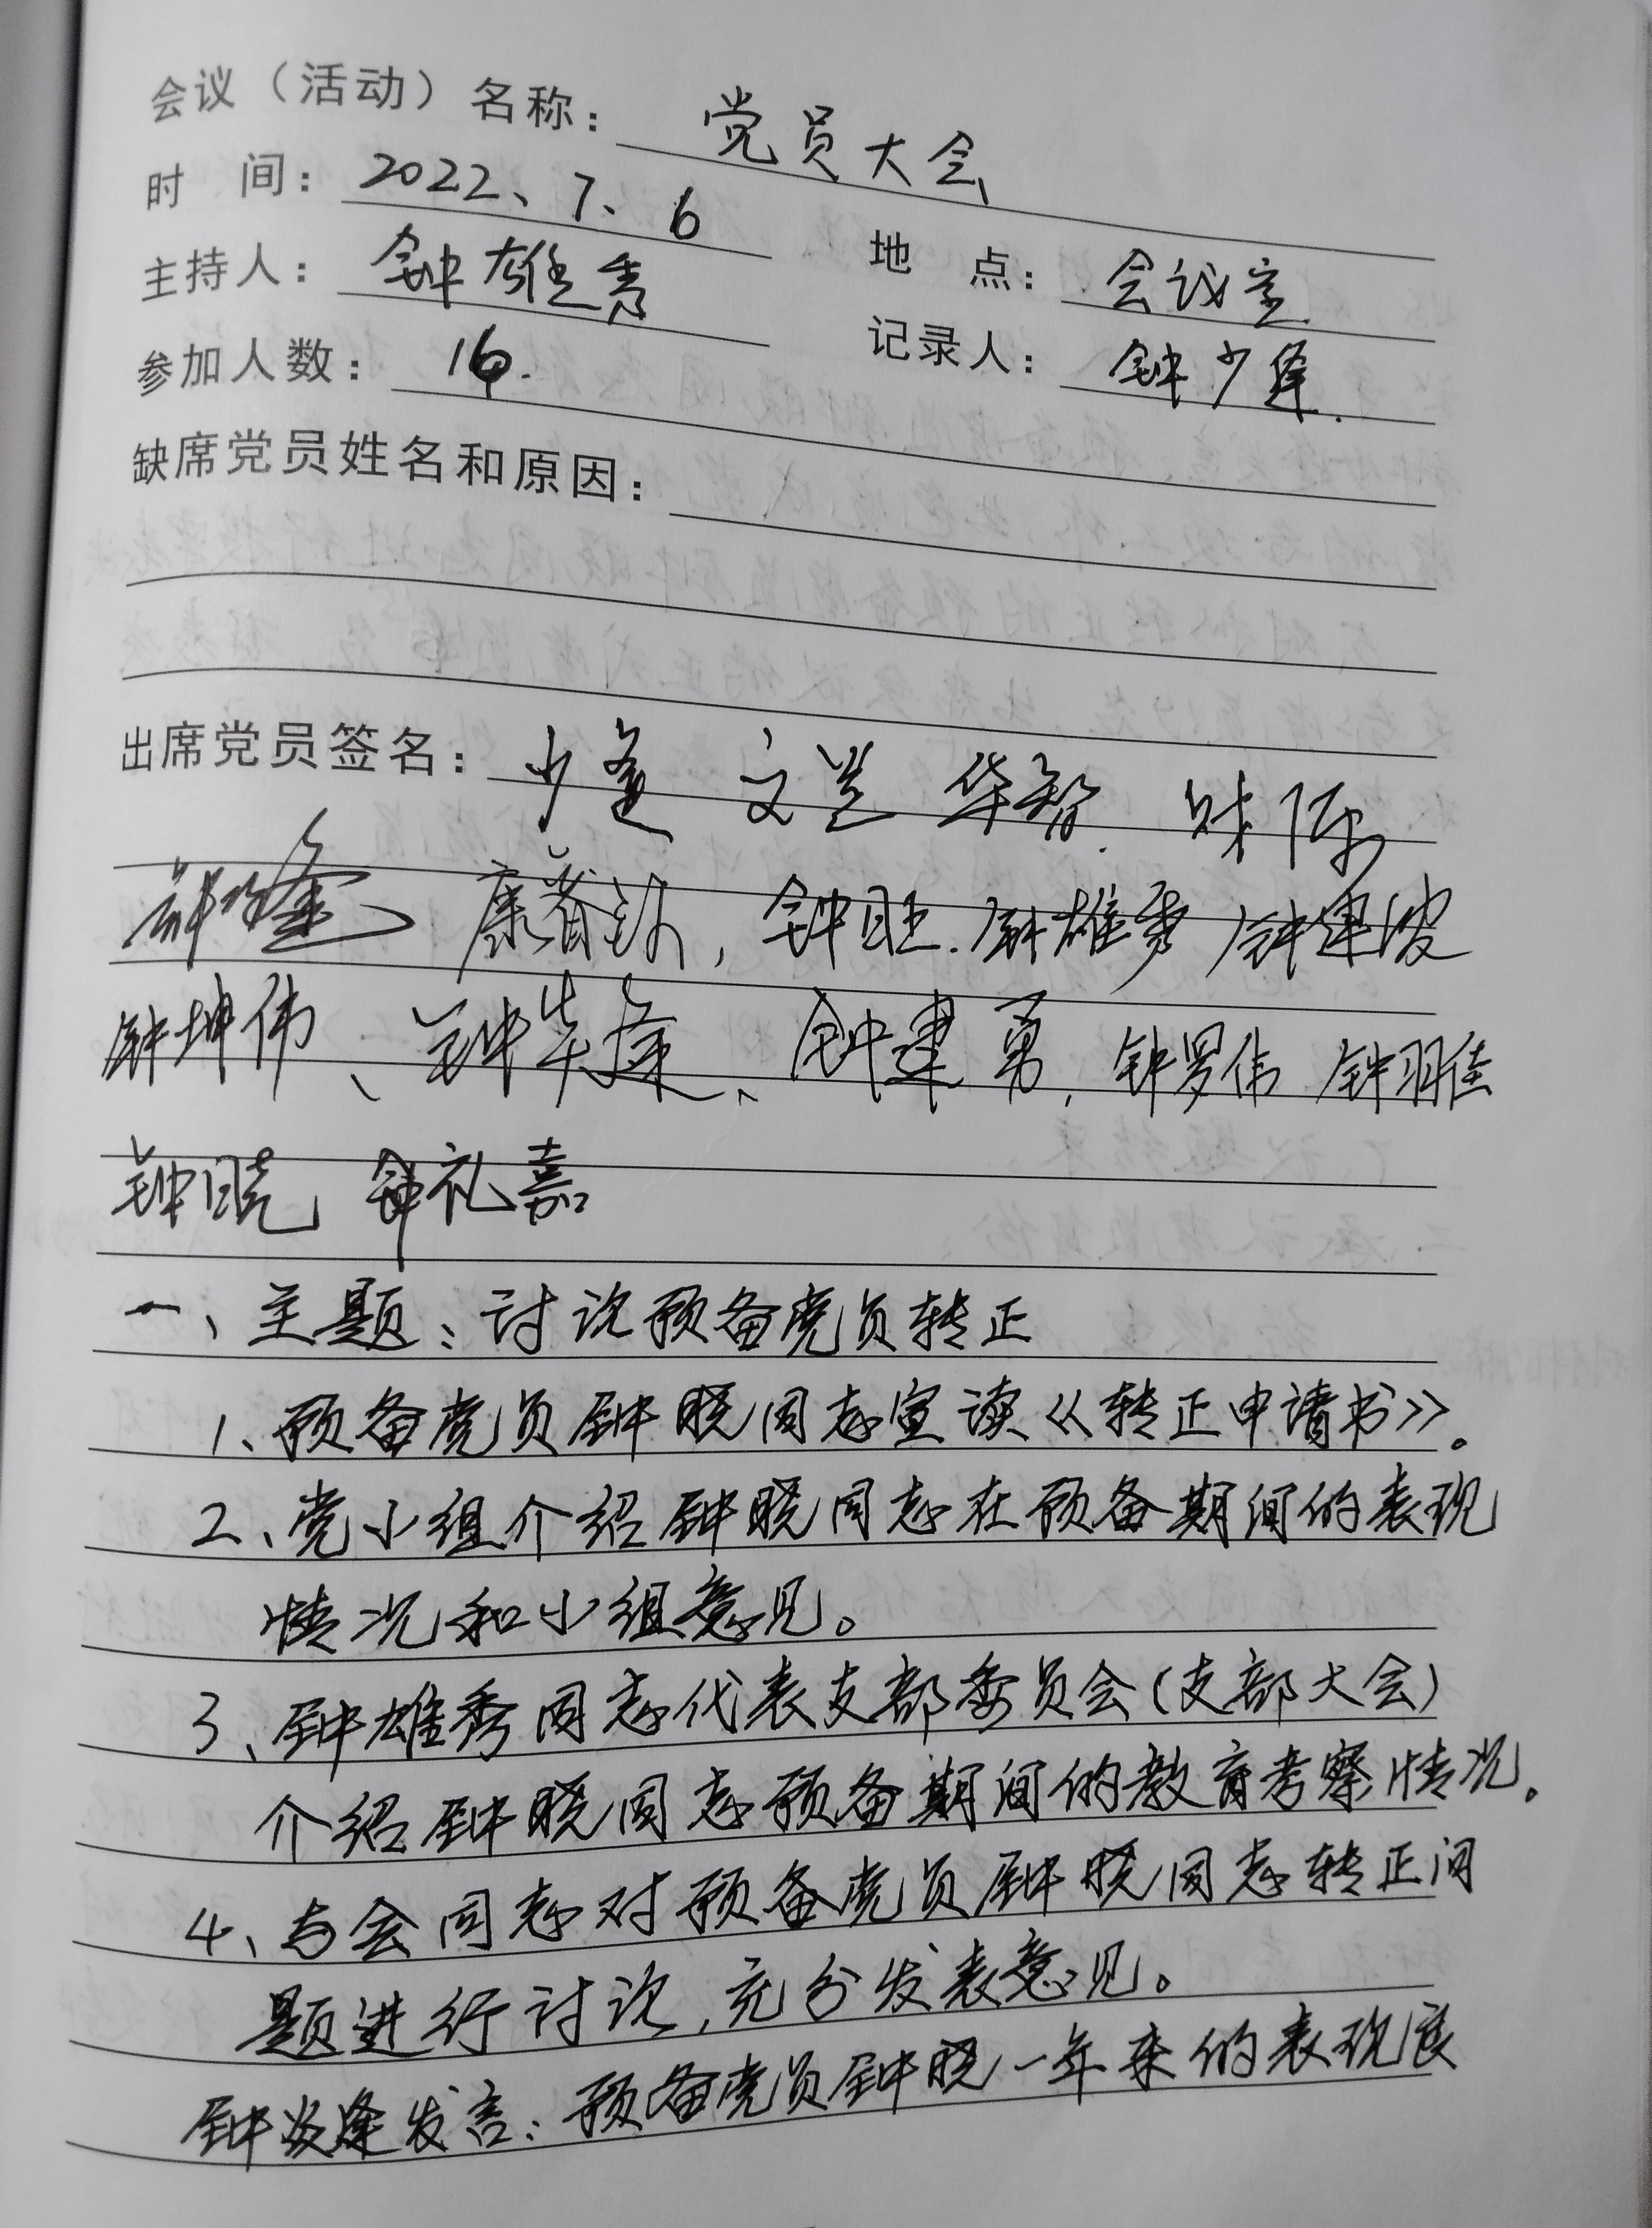 会议（活动）名称：党员大会
时 间：2022、7、6
地 点：会议室
主持人：钟雄秀
记录人：钟少逢.
参加人数：16.
缺席党员姓名和原因：
出席党员签名：少逢 文兰 华智.
康 钟旺. 钟雄秀 钟建波
钟坤伟、钟 、钟建勇, 钟罗伟 钟羽佳
钟晓 钟礼嘉
一、主题：讨论预备党员转正
1、预备党员钟晓同志宣读《转正申请书》。
2、党小组介绍钟晓同志在预备期间的表现
情况和小组意见。
3、钟雄秀同志代表支部委员会(支部大会)
介绍钟晓同志预备期间的教育考察情况。
4、与会同志对预备党员钟晓同志转正问
题进行讨论,充分发表意见。
钟 逢发言：预备党员钟晓一年来的表现